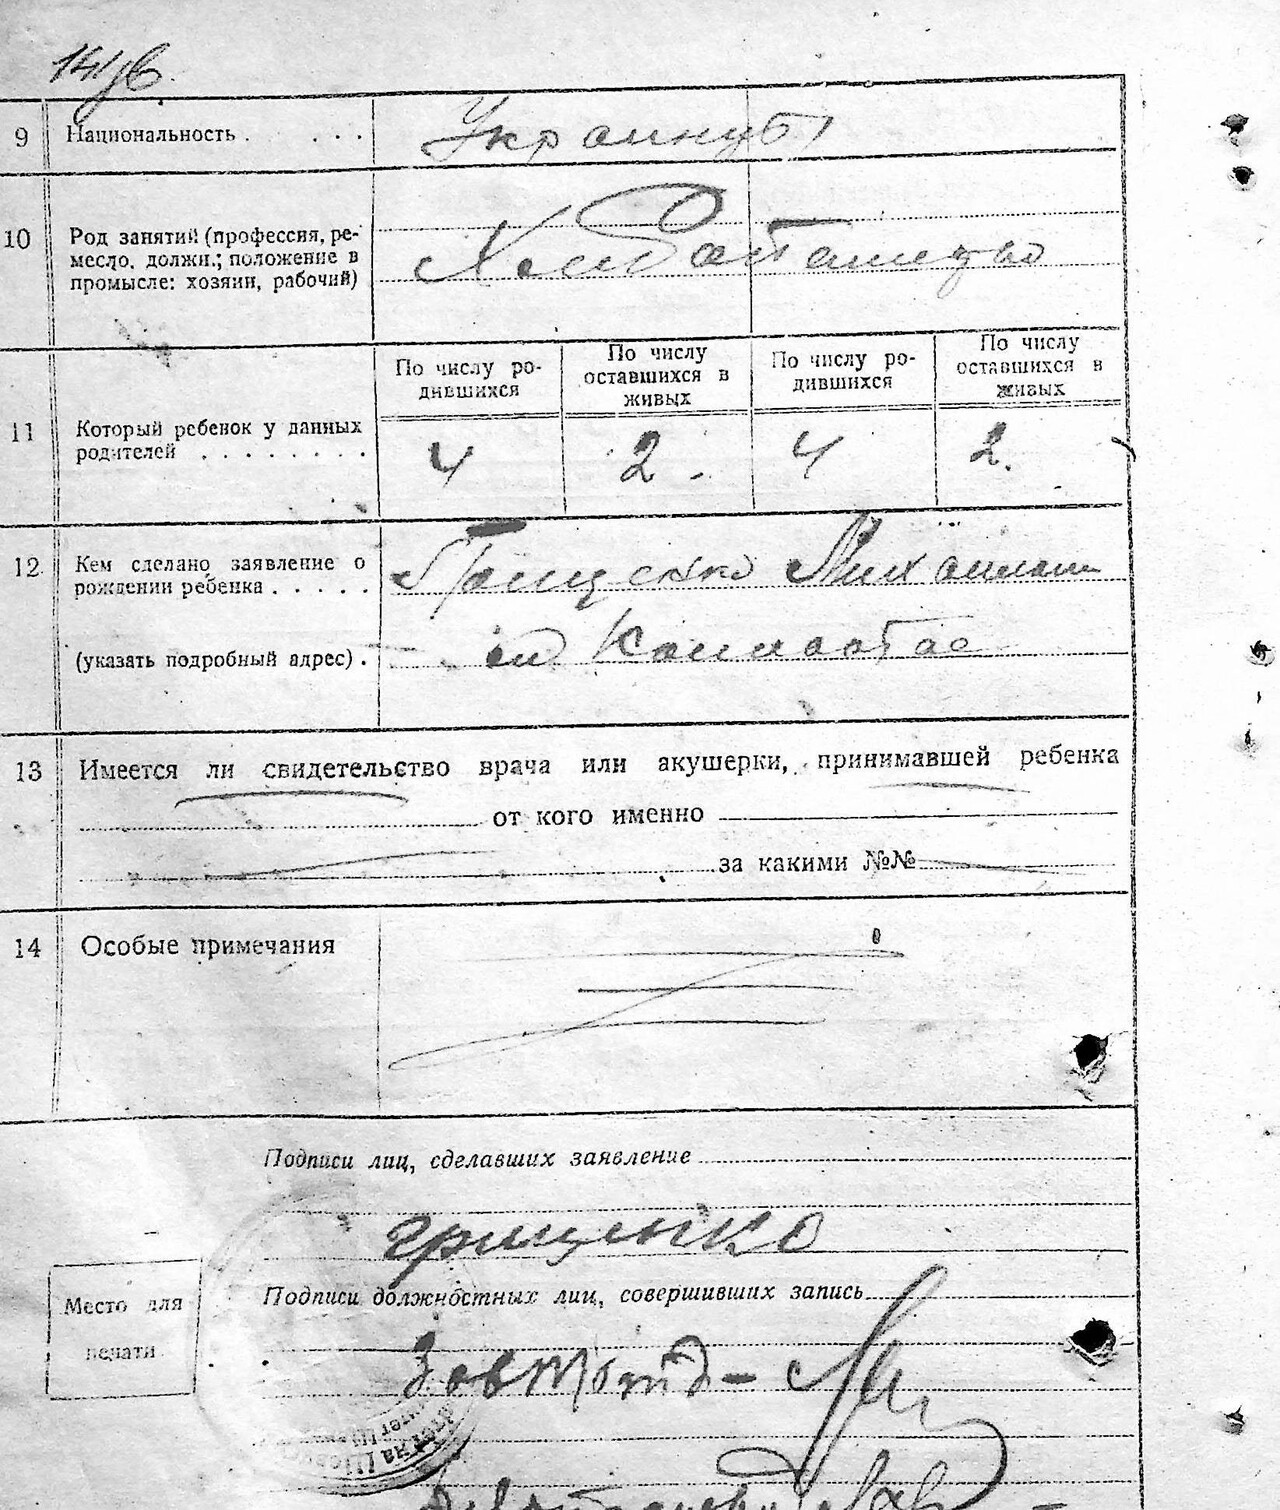 9 Национальность . . . . Украинцы
10 Род занятий (профессия, ре-
месло, должн.; положение в
промысле: хозяин, рабочий)
Хлебопашество
По числу ро-
дившихся
По числу
оставшихся в
живых
По числу ро-
дившихся
По числу
оставшихся в
живых
11 Который ребенок у данных
родителей . . . . . . . .
4 2. 4 2.
12 Кем сделано заявление о
рождении ребенка . . . . .
Михаилом
(указать подробный адрес) .
13 Имеется ли свидетельство врача или акушерки, принимавшей ребенка
от кого именно
за какими №№
14 Особые примечания
Подписи лиц, сделавших заявление
Грищенко
Подписи должностных лиц, совершивших запись
Место для
печати